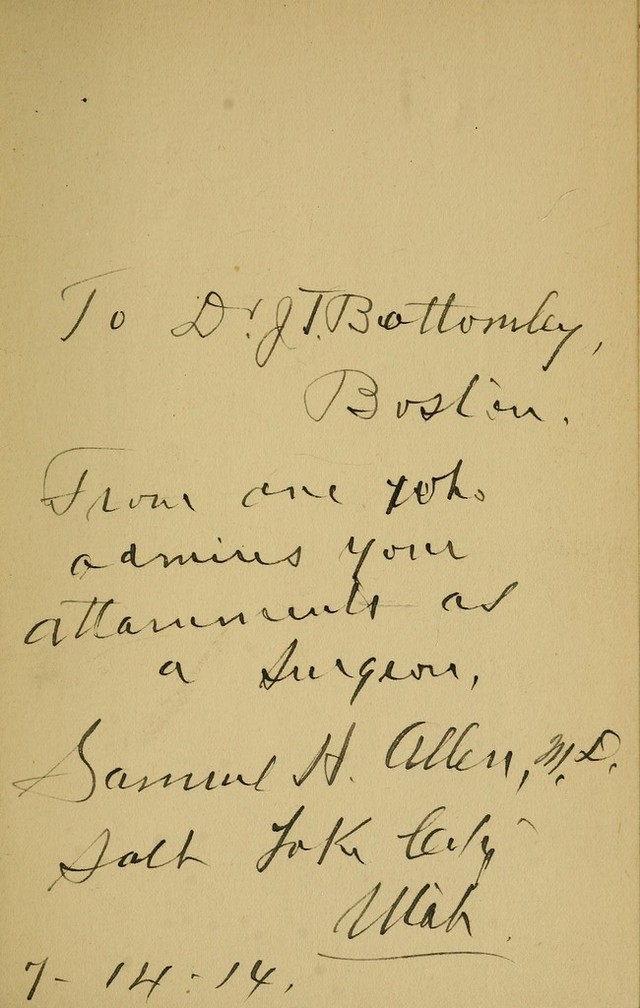 To Dr. J. T. Bottomley,
Boston.
From one who
admires your
attainments as
a Surgeon,
Samuel H. Allen, M.D.
Salt Lake City
Utah.
7-14-14.